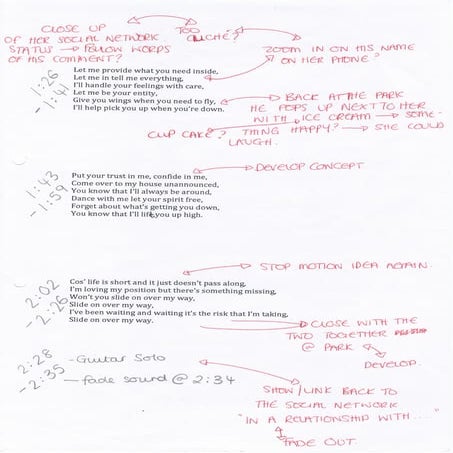 CLOSE UP
OF HER SOCIAL NETWORK
STATUS → FOLLOW WORDS
OF HIS COMMENT?
TOO
CLICHÉ?
ZOOM IN ON HIS NAME
ON HER PHONE?
1:26
- 1:41
Let me provide what you need inside,
Let me in tell me everything,
I'll handle your feelings with care,
Let me be your entity,
Give you wings when you need to fly,
I'll help pick you up when you're down.
BACK AT THE PARK
HE POPS UP NEXT TO HER
WITH ICE CREAM → SOME-
CUP CAKE? THING HAPPY? → SHE COULD
LAUGH.
1:43
- 1:59
DEVELOP CONCEPT
Put your trust in me, confide in me,
Come over to my house unannounced,
You know that I'll always be around,
Dance with me let your spirit free,
Forget about what's getting you down,
You know that I'll lift you up high.
STOP MOTION IDEA AGAIN.
2:02
- 2:26
Cos' life is short and it just doesn't pass along,
I'm loving my position but there's something missing,
Won't you slide on over my way,
Slide on over my way,
I've been waiting and waiting it's the risk that I'm taking,
Slide on over my way.
CLOSE WITH THE
TWO TOGETHER
@ PARK
DEVELOP.
2:28
- 2:35
- Guitar Solo
- fade sound @ 2:34
SHOW/LINK BACK TO
THE SOCIAL NETWORK
"IN A RELATIONSHIP WITH....."
FADE OUT.